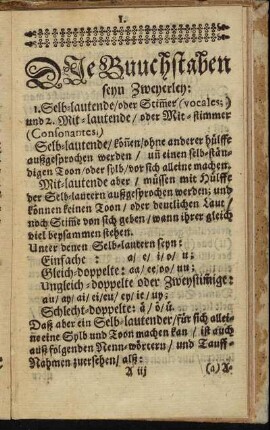 1.
DJe Buuchstaben
seyn Zweyerley:
1. Selb-lautende/oder Stim̄er (vocales;)
und 2. Mit-lautende/ oder Mit-stimmer
(Consonantes.)
Selb-lautende/ kön̄en/ohne anderer hülffe
außgesprochen werden / un̄ einen selb-stän-
digen Toon / oder sylb/vor sich alleine machen.
Mit-lautende aber / müssen mit Hülffe
der Selb-lautern außgesprochen werden; und
können keinen Toon / oder deutlichen Laut/
noch Stim̄e von sich geben/ wann ihrer gleich
viel beysammen stehen.
Unter denen Selb-lautern seyn:
Einfache : a/ e/ i/ o/ u;
Gleich-doppelte: aa/ ee/ oo/ uu;
Ungleich-doppelte oder Zweystimige:
au/ ay/ ai/ ei/ eu/ ey/ ie/ uy;
Schlecht-doppelte: å/ ö/ ü.
Daß aber ein Selb-lautender/für sich allei-
ne eine Sylb und Toon machen kan / ist auch
auß folgenden Nenn-wörtern/ und Tauff-
Nahmen zuersehen/ alß:
A iij (a) A-